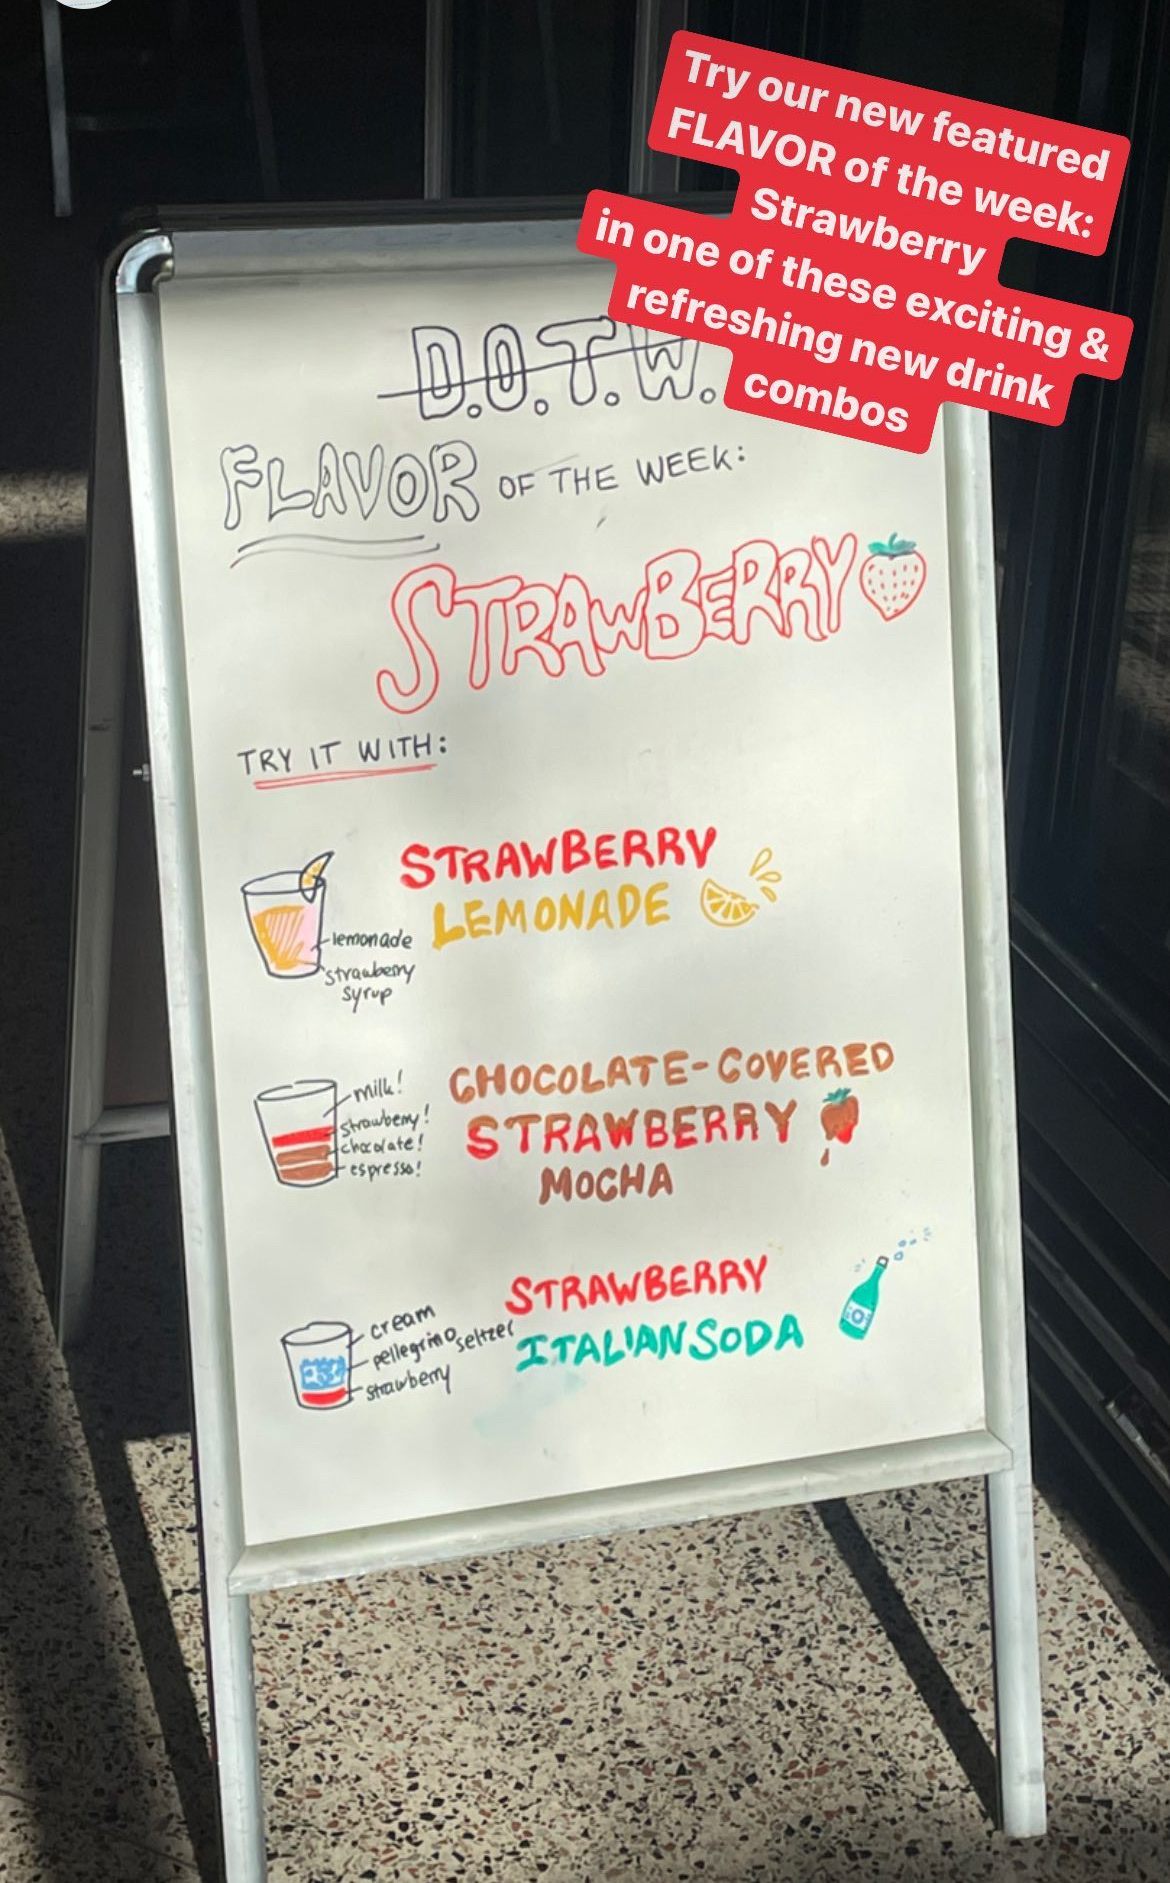 Try our new featured
FLAVOR of the week:
Strawberry
in one of these exciting &
refreshing new drink
combos
D.O.T.W.
FLAVOR OF THE WEEK:
STRAWBERRY
TRY IT WITH:
STRAWBERRY
LEMONADE
lemonade
strawberry
syrup
CHOCOLATE-COVERED
STRAWBERRY
MOCHA
milk!
strawberry!
chocolate!
espresso!
STRAWBERRY
ITALIAN SODA
cream
pellegrino seltzer
strawberry